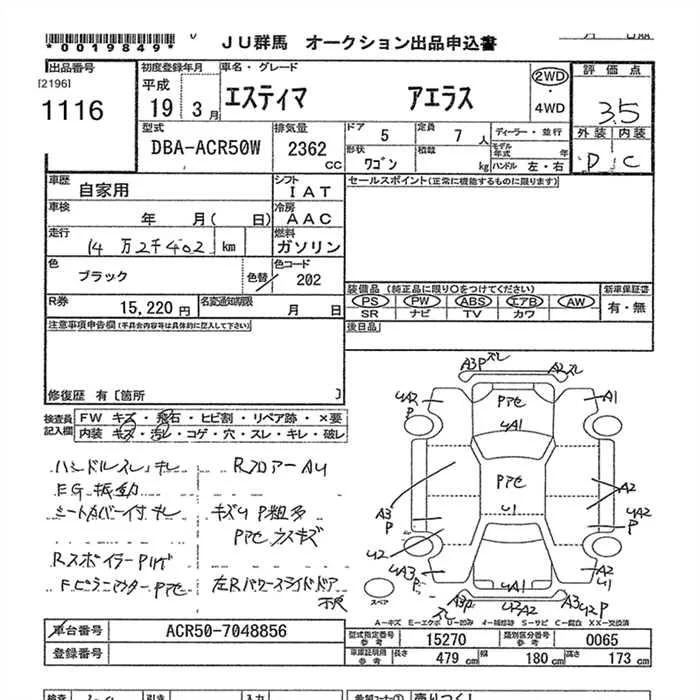 *0019849*
JU群馬 オークション出品申込書
出品番号
[2196]
1116
初度登録年月
平成
19 3月
車名・グレード
エスティマ アエラス
2WD
・
4WD
評価点
3.5
外装 内装
D C
型式
DBA-ACR50W
排気量
2362
CC
ドア 5
定員 7人
ディーラー・並行
形状 ワゴン
積載 kg
モデル年式 年
ハンドル 左・右
車歴
自家用
シフト
IAT
車検
年 月( 日)
冷房
AAC
走行
14万2千402 km
燃料
ガソリン
色
ブラック
色替
色コード
202
R券
15,220円
名変通知期限
月 日
セールスポイント(正常に機能するものに限ります)
装備品(純正品に限り○をつけてください)
PS PW ABS エアB AW
SR ナビ TV カワ
新車保証書
有・無
後日品
注意事項申告欄(不具合内容等は具体的に記入して下さい)
修復歴 有〔箇所 〕
検査員記入欄
FW キズ・飛石・ヒビ割・リペア跡・×要
内装 キズ・汚レ・コゲ・穴・スレ・キレ・破レ
ハンドルスレ・キレ
Rフロアー AU
EG振動
シートカバー付 キレ
キズU P粗多
Pアセ ウスキズ
Rスポイラー Pハゲ
左Rパワースライドドア
不良
A3P ズレ
A2ズレ
UA2
P
Pアセ
UA1
A1
Pアセ
U1
A3
P
A2
UA2
P
U2
UA3
P
UA1
A2
U1
A3P
U2A2
A3U2P
スペア
A-キズ E-エクボ U-凹み
車台番号
ACR50-7048856
登録番号
型式指定番号
参考
15270
類別区分番号
参考
0065
車庫証明用
参考
長さ 479 cm
幅 180 cm
高さ 173 cm